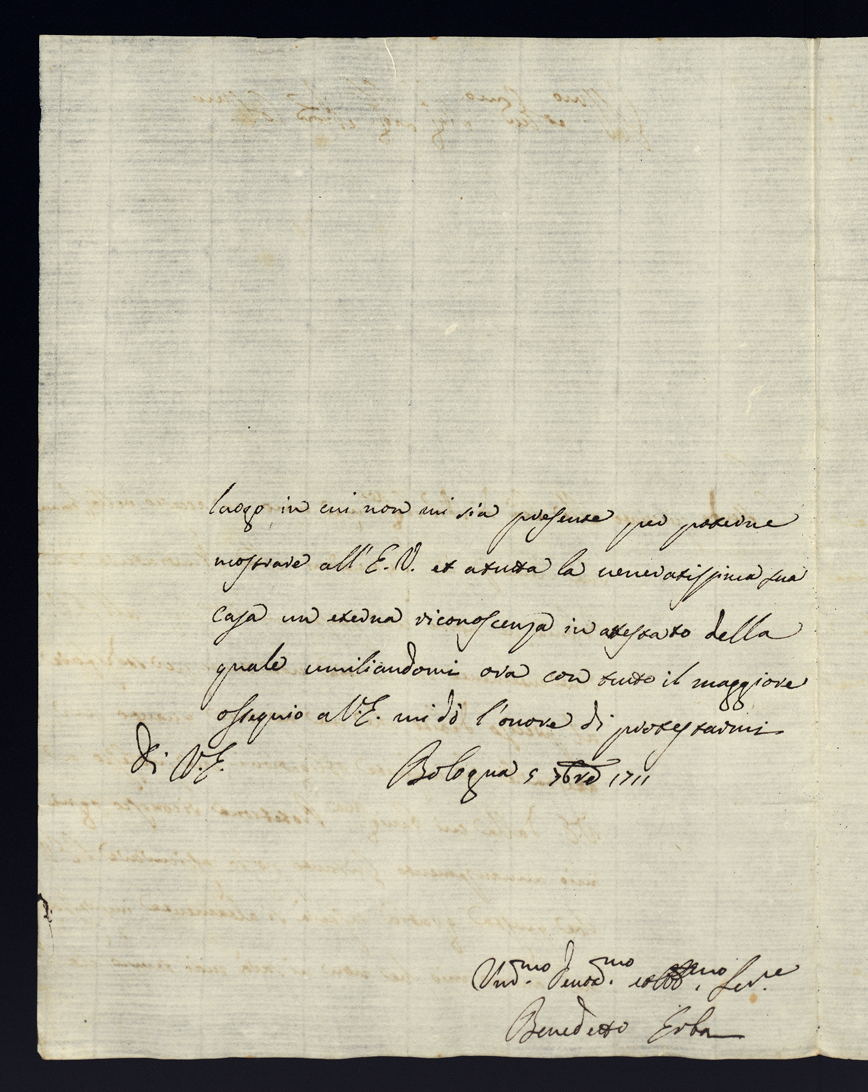 luogo in cui non mi sia presente per poterne
mostrare all'E.V. et a tutta la veneratissima sua
casa un eterna riconoscenza in attestato della
quale umiliandomi ora con tutto il maggiore
ossequio a V.E. mi dò l'onore di protestarmi
Di V.E.
Bologna 5 7bre 1711
Um.mo Devot.mo et Obb.mo Ser.re
Benedetto Erba